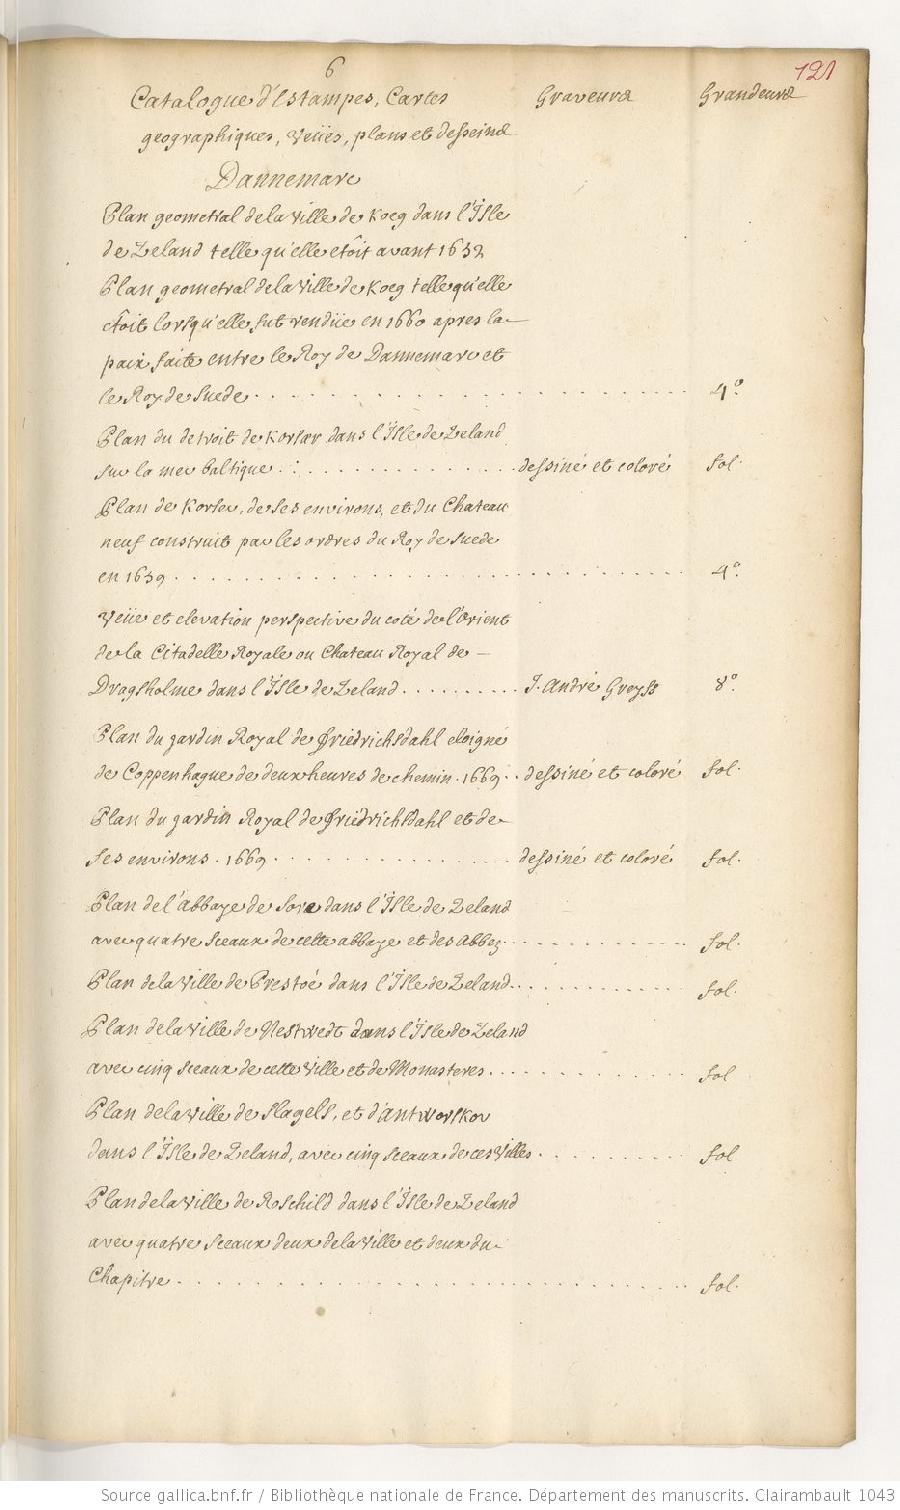 6
121
Catalogue d'Estampes, Cartes Graveurs Grandeurs
geographiques, veües, plans et desseins
Dannemarc
Plan geometral de la ville de Koeg dans l'Isle
de Zeland telle qu'elle etoit avant 1632
Plan geometral de la ville de Koeg telle qu'elle
etoit lorsqu'elle fut rendüe en 1660 apres la
paix faite entre le Roy de Dannemarc et
le Roy de Suede . . . . . . . . . . . . . . . . . . . . 4.º
Plan du detroit de Korsor dans l'Isle de Zeland
sur la mer baltique . . . . . . . . . . . . . dessiné et coloré fol.
Plan de Korsor, de ses environs, et du Chateau
neuf construit par les ordres du Roy de Suede
en 1659 . . . . . . . . . . . . . . . . . . . . . . 4.º
Veüe et elevation perspective du coté de l'Orient
de la Citadelle Royale ou Chateau Royal de —
Dragsholme dans l'Isle de Zeland . . . . . . . . . . J. André Greyss 8.º
Plan du jardin Royal de Friedrichsdahl eloigné
de Coppenhague de deux heures de chemin . 1669 . . dessiné et coloré fol.
Plan du jardin Royal de Friedrichsdahl et de
ses environs . 1669 . . . . . . . . . . . . dessiné et coloré fol.
Plan de l'abbaye de Sore dans l'Isle de Zeland
avec quatre sceaux de cette abbaye et des Abbez . . . . . . . . . fol.
Plan de la ville de Prestoé dans l'Isle de Zeland . . . . . . . . . . fol.
Plan de la ville de Nestwedt dans l'Isle de Zeland
avec cinq sceaux de cette ville et de Monasteres . . . . . . . . . . fol
Plan de la ville de Slagels, et d'antworskou
dans l'Isle de Zeland, avec cinq sceaux de ces Villes . . . . . . . . fol
Plan de la ville de Roschild dans l'Isle de Zeland
avec quatre sceaux deux de la ville et deux du
Chapitre . . . . . . . . . . . . . . . . . . . . . . . fol.
Source gallica.bnf.fr / Bibliothèque nationale de France. Département des manuscrits. Clairambault 1043